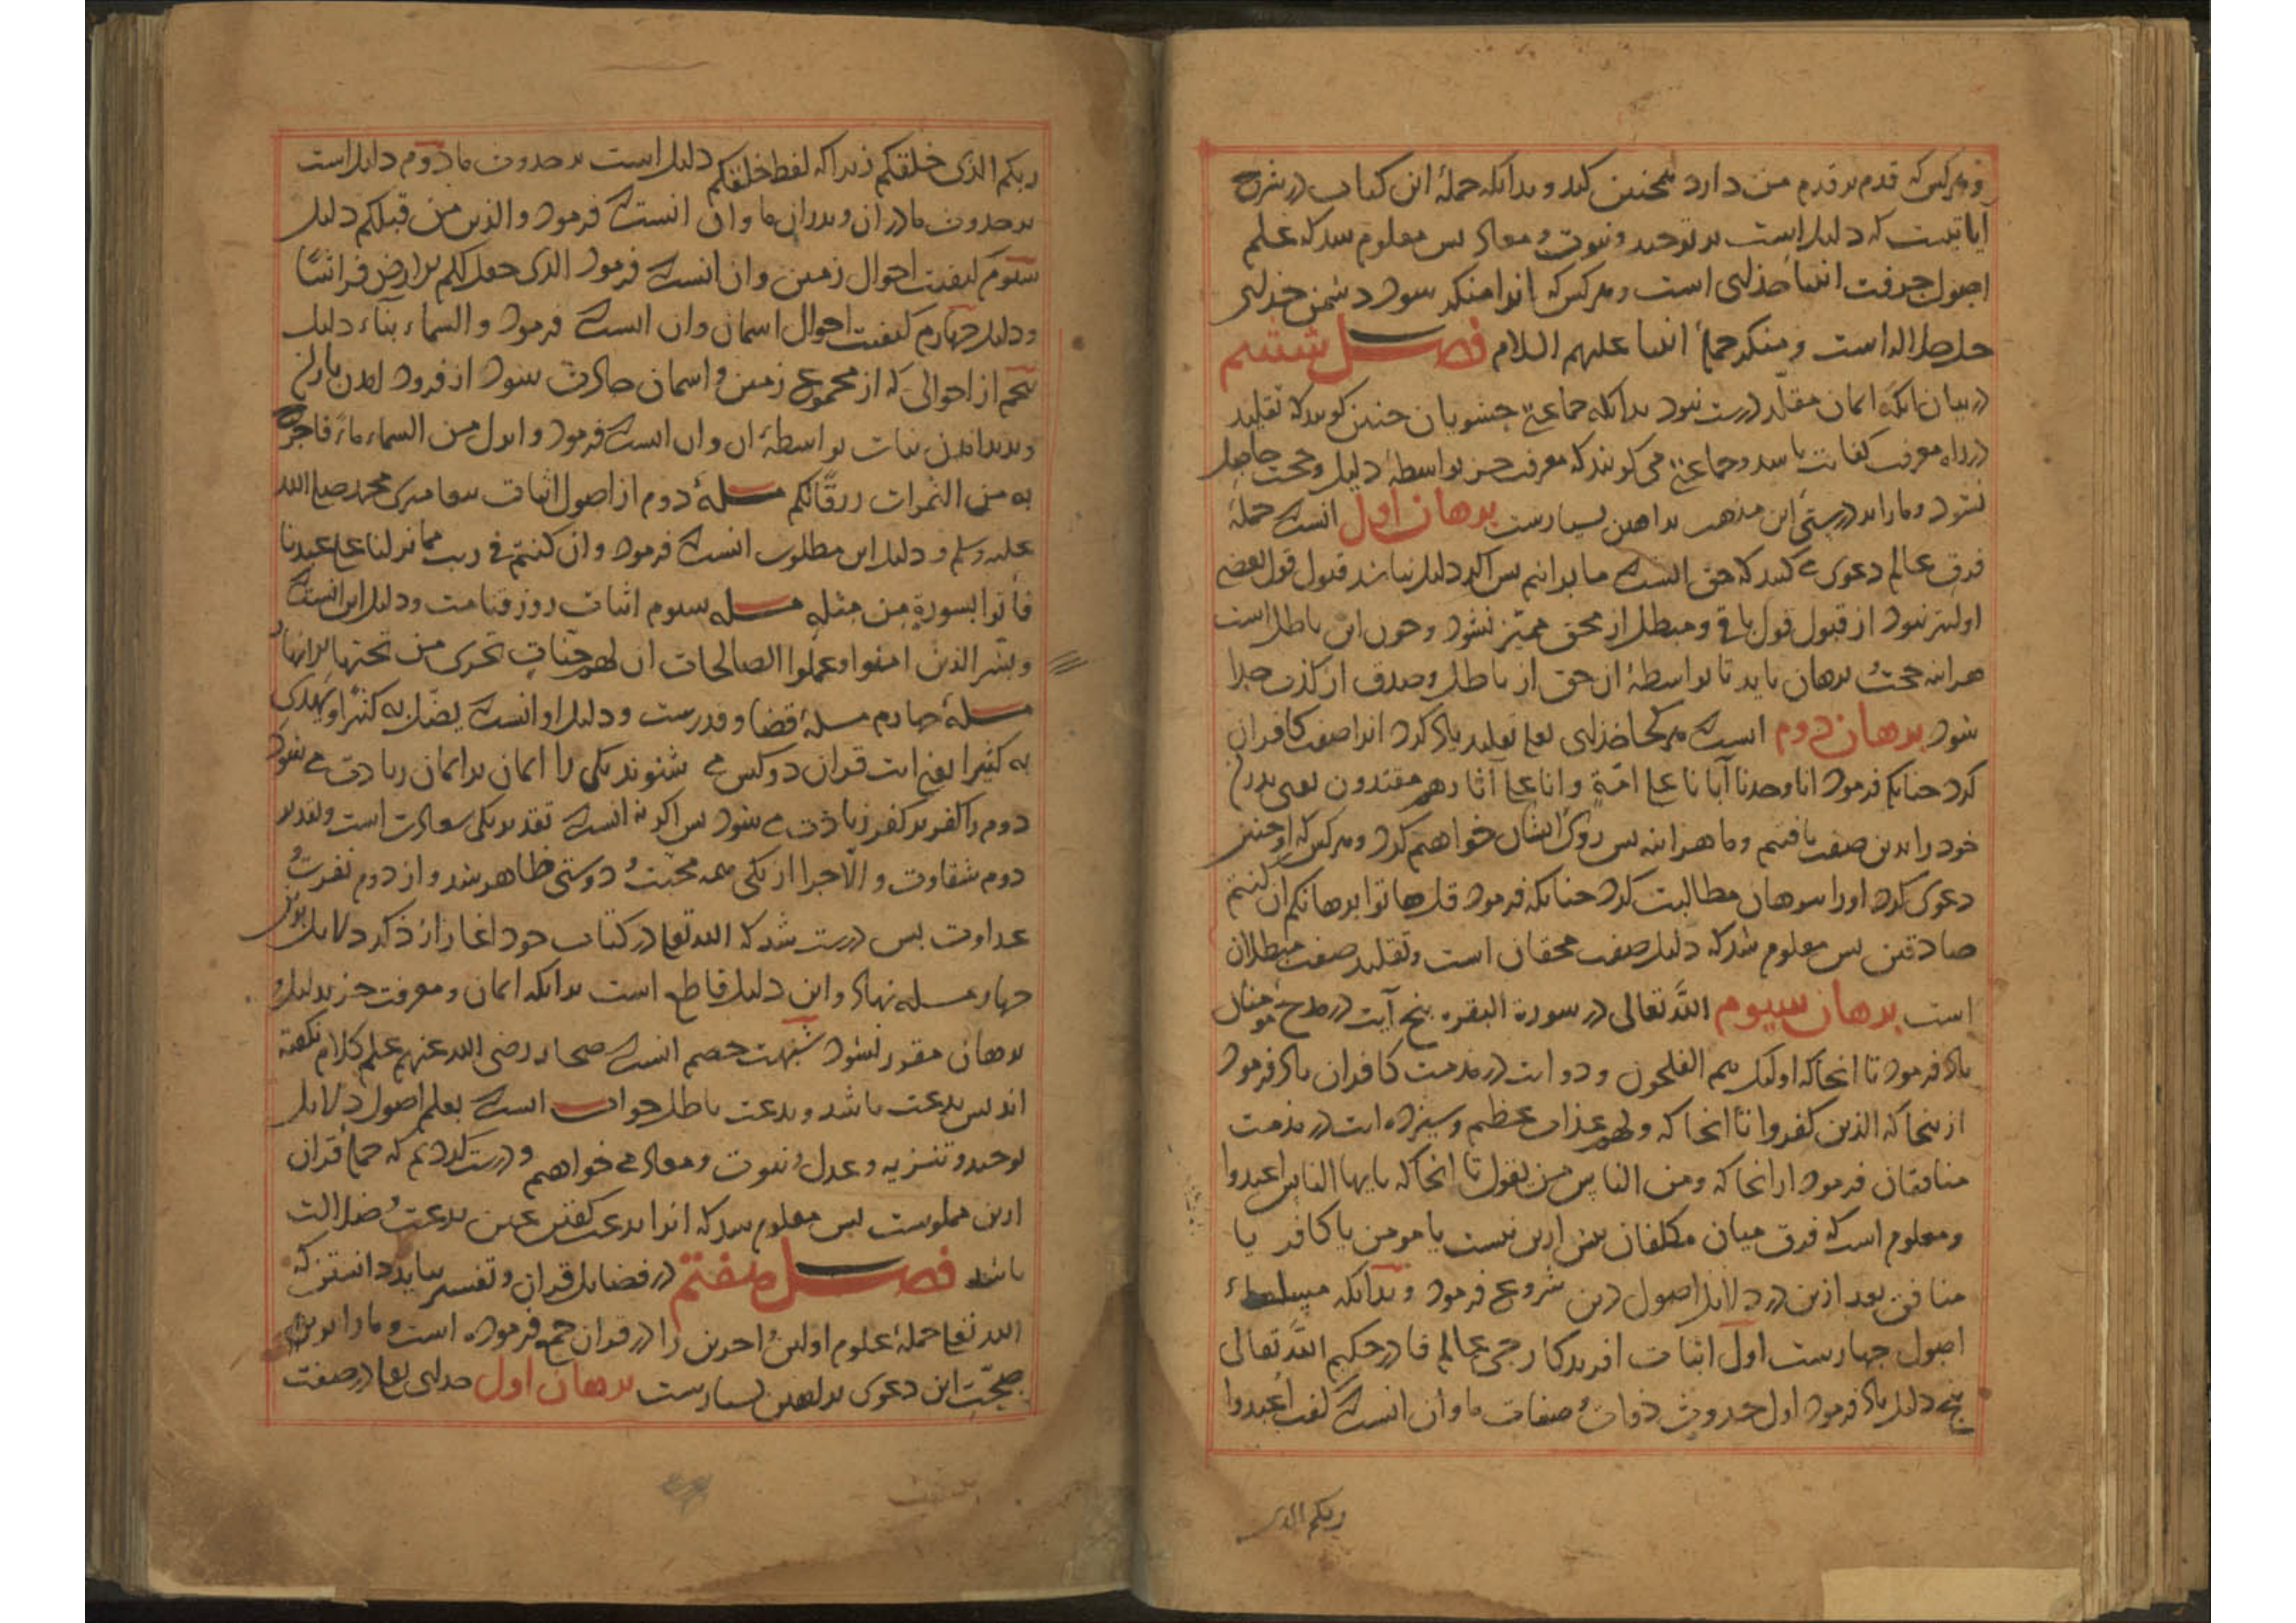 و هرکس که قدم بر قدم من دارد همچنین کند و بدانکه جملهٔ این کتاب در شرح
آیاتیست که دلیل است بر توحید و نبوت و معاد پس معلوم شد که علم
اصول حرفت انبیا خدای است و هرکس که آنرا منکر شود دشمن خدای
جل جلاله است و منکر جملهٔ انبیا علیهم السلام فصل ششم
در بیان آنکه ایمان مقلد درست نبود بدانکه جماعتی حشویان چنین گویند که تقلید
در راه معرفت کفایت باشد و جماعتی می گویند که معرفت جز بواسطهٔ دلیل و حجت حاصل
نشود و ما را بر درستی این مذهب براهین بسیارست برهان اول آنست که جملهٔ
فرق عالم دعوی می کنند که حق آنست که ما برانیم پس اگر دلیل نباشد قبول قول بعضی
اولیتر نبود از قبول قول باقی و مبطل از محق ممیز نشود و چون این باطل است
هراینه حجت و برهان باید تا بواسطهٔ آن حق از باطل و صدق از کذب جدا
شود برهان دوم آنست که هرکجا خدای تعالی تقلید یاد کرد آنرا صفت کافران
کرد چنانکه فرمود انا وجدنا آبانا علی امّةٍ و انا علی آثارهم مقتدون یعنی پدران
خود را بدین صفت یافتیم و ما هراینه پس روی ایشان خواهیم کرد و هرکس که او چنین
دعوی کرد او را ببرهان مطالبت کرد چنانکه فرمود قل هاتوا برهانکم ان کنتم
صادقین پس معلوم شد که دلیل صفت محقان است و تقلید صفت مبطلان
است برهان سیوم الله تعالی در سورة البقره پنج آیت در مدح مومنان
یاد فرمود تا انجا که اولیک هم المفلحون و دو ایت در مذمت کافران یاد فرمود
از ینجا که الذین کفروا تا انجا که و لهم عذاب عظیم و سیزده ایت در مذمت
منافقان فرمود از انجا که و من الناس من یقول تا انجا که یایها الناس اعبدوا
و معلوم است که فرق میان مکلفان بیش ازین نیست یا مومن یا کافر یا
منافق بعد ازین در دلایل اصول دین شروع فرمود و بدانکه
اصول چهارست اول اثبات افریدکار حی عالم قادر حکیم الله تعالی
پنج دلیل یاد فرمود اول حدوث ذوات و صفات ما و ان آنست که گفت اعبدوا
ربکم الذی
ربکم الذی خلقکم زیرا که لفظ خلقکم دلیل است بر حدوث ما دوم دلیل است
بر حدوث مادران و پدران ما و ان انست که فرمود والذین من قبلکم دلیل
سیوم کیفیت احوال زمین و ان انست که فرمود الذی جعل لکم الارض فراشًا
و دلیل چهارم کیفیت احوال اسمان و ان انست که فرمود و السماء بناء دلیل
پنجم از احوالی که از مجموع زمین و اسمان حادث شود از فرود امدن باران
و پدید امدن نبات بواسطهٔ ان و ان انست که فرمود و انزل من السماء ماءً فاخرج
به من الثمرات رزقًا لکم مسلهٔ دوم از اصول اثبات پیغامبری محمد صلی الله
علیه وسلم و دلیل این مطلوب انست که فرمود و ان کنتم فی ریب مما نزلنا علی عبدنا
فأتوا بسورةٍ من مثله مسله سیوم اثبات روز قیامت و دلیل این انست که
و بشر الذین امنوا و عملوا الصالحات ان لهم جنّاتٍ تجری من تحتها الانهار
مسلهٔ چهارم مسلهٔ قضا و قدرست و دلیل او انست که یضل به کثیرًا و یهدی
به کثیرا یعنی ایت قران دو کس می شنوند یکی را ایمان بر ایمان زیادت می شود
دوم را کفر بر کفر زیادت می شود پس اگر نه انست که تقدیر یکی سعادت است و تقدیر
دوم شقاوت و الّا چرا از یکی همه محبت و دوستی ظاهر شد و از دوم نفرت و
عداوت پس درست شد که الله تعالی در کتاب خود اغاز از ذکر دلایل برین
چهار مسله نهاد و این دلیل قاطع است بدانکه ایمان و معرفت جز بدلیل و
برهان مقرر نشود شبهت خصم انست که صحابه رضی الله عنهم علم کلام نگفته
اند پس بدعت باشد و بدعت باطل جواب انست که بعلم اصول دلایل
توحید و تنزیه و عدل و نبوت و معاد می خواهیم و درست کردیم که جملهٔ قران
ازین مملوست پس معلوم شد که انرا بدعت گفتن عین بدعت و ضلالت
باشد فصل هفتم در فضایل قران و تفسیر بباید دانستن که
الله تعالی جملهٔ علوم اولین و اخرین را در قران جمع فرموده است و ما را بر
صحّتِ این دعوی براهین بسیارست برهان اول خدای تعالی در صفت